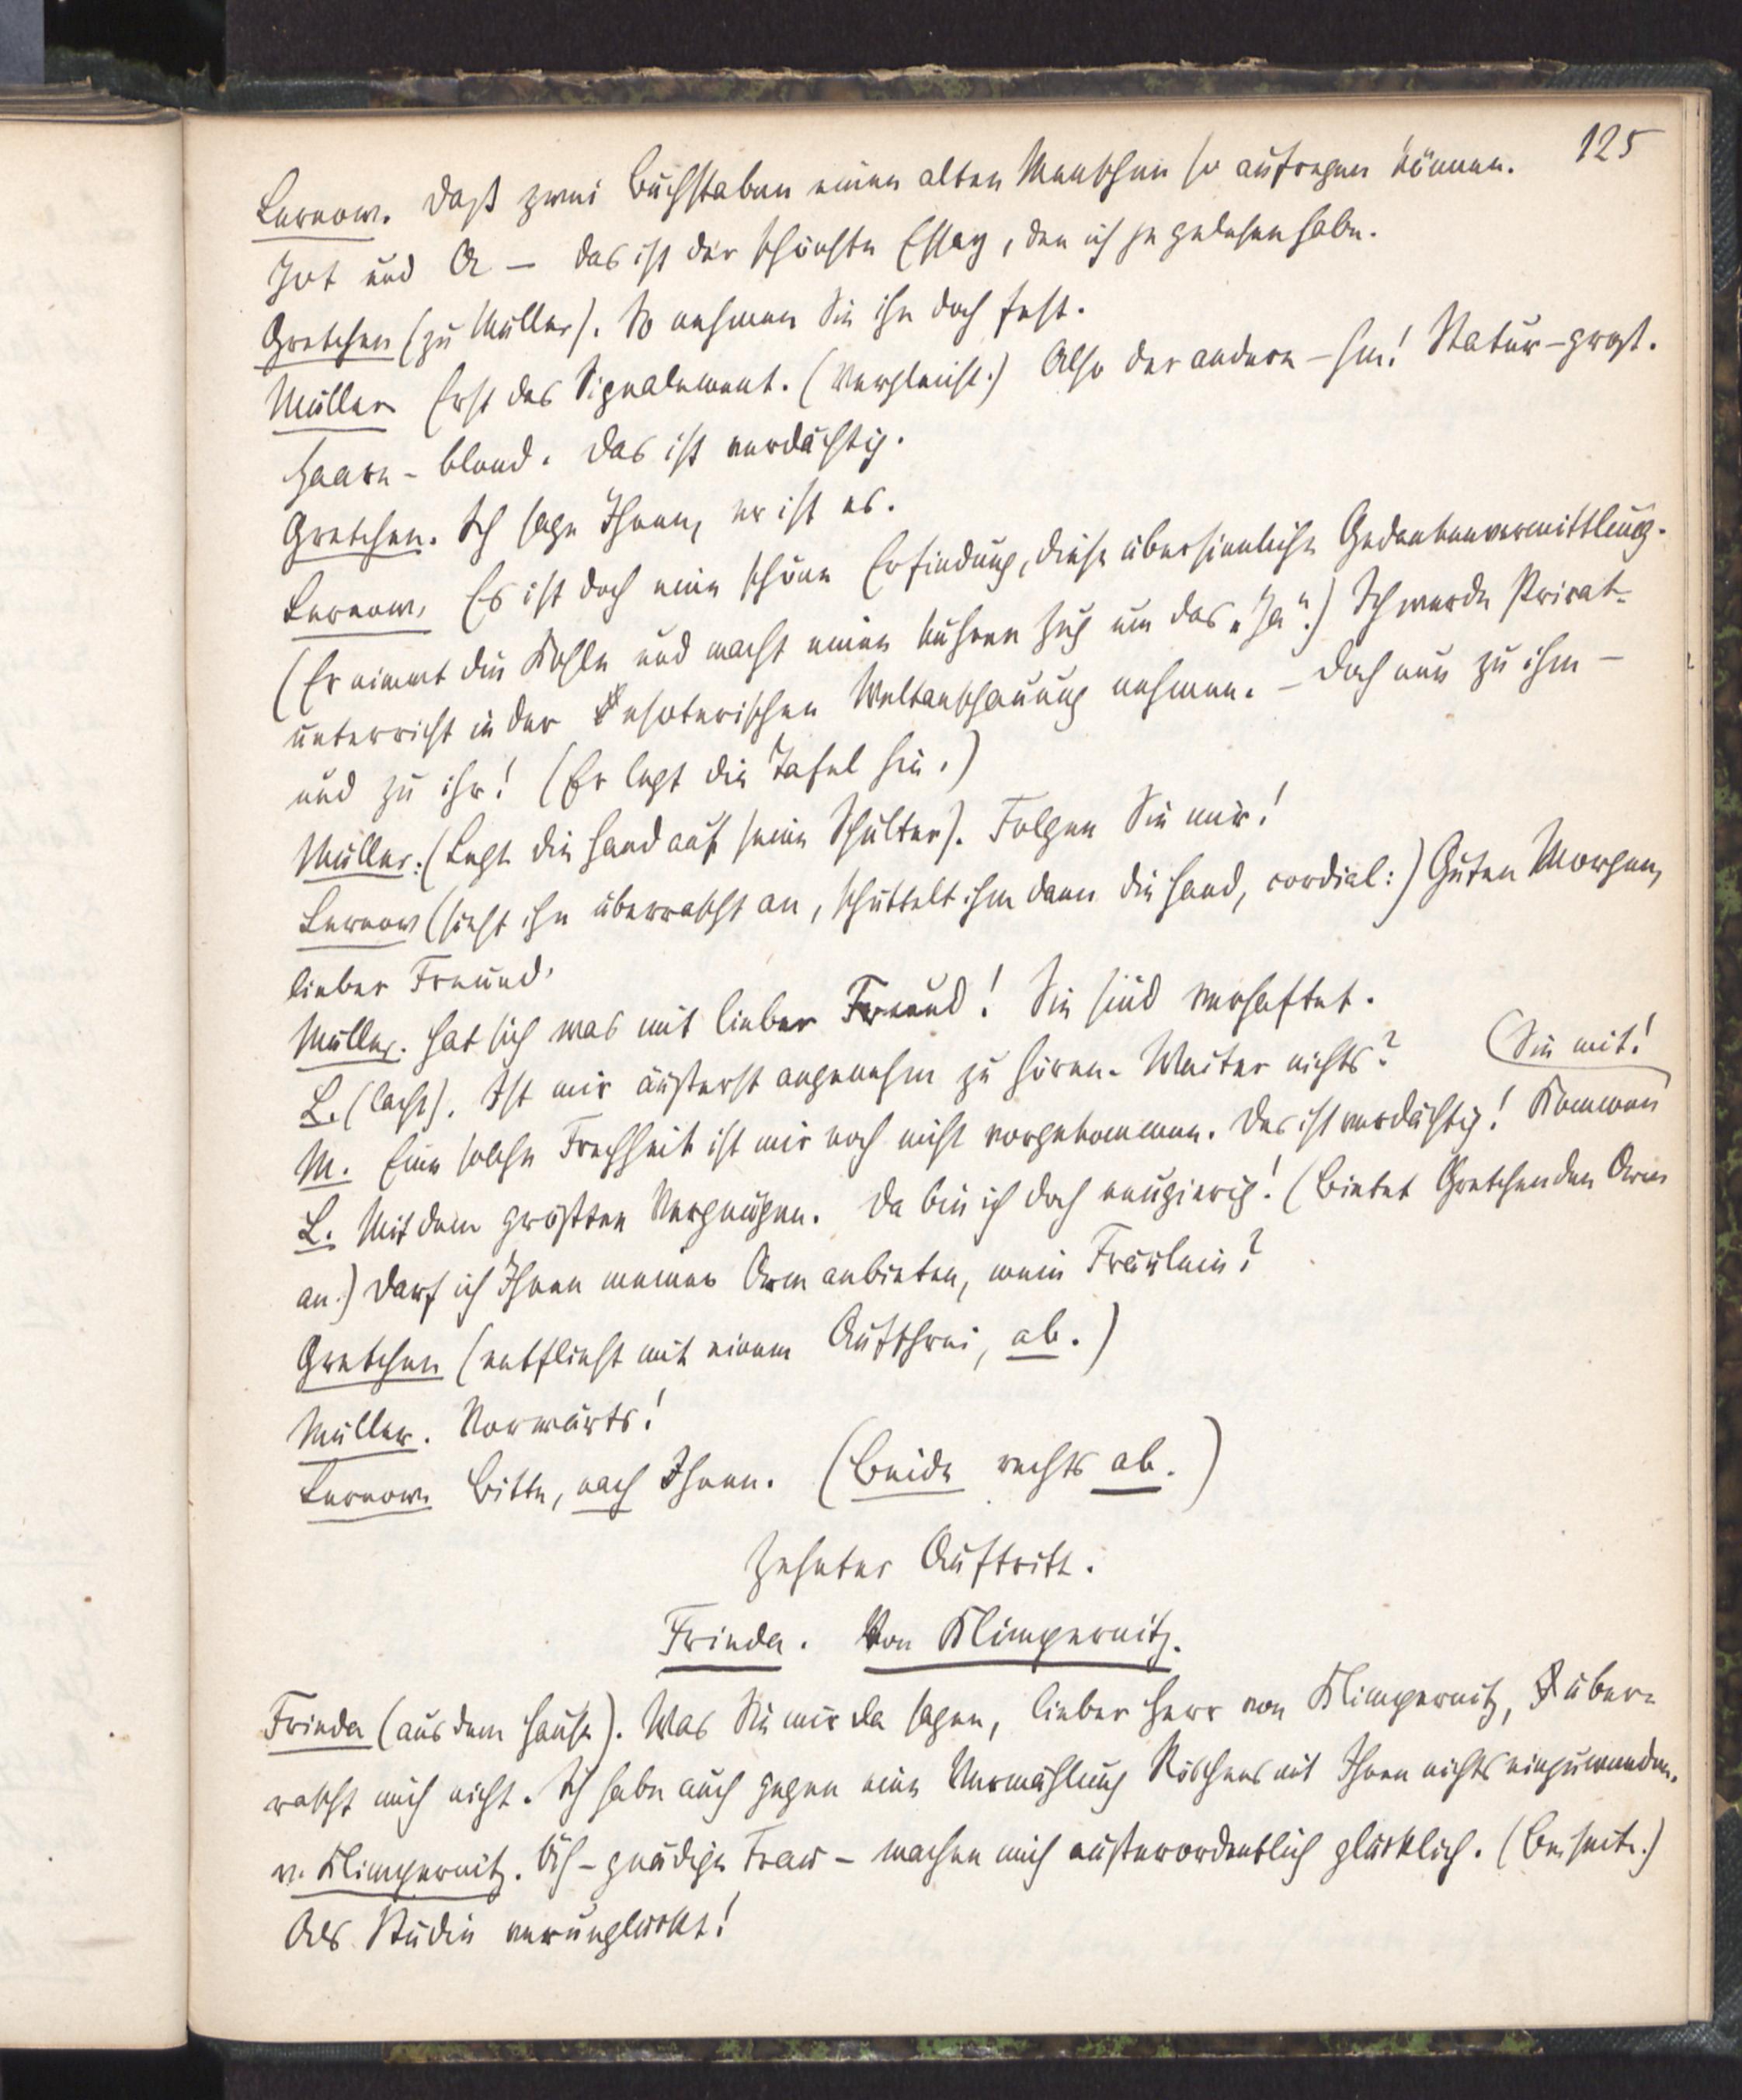 125
Lernow. Daß zwei Buchstaben einen alten Menschen so aufregen können.
Jot und A — das ist der schönste Essay, den ich je gelesen habe.
Gretchen (zu Müller). So nehmen Sie ihn doch fest.
Müller. Erst das Signalement. (Vergleicht.) Also der andere – hm! Statur – groß.
Haare – blond. Das ist verdächtig.
Gretchen. Ich sage Ihnen, er ist es.
Lernow. Es ist doch eine schöne Erfindung, diese übersinnliche Gedankenvermittlung.
(Er nimmt die Kohle und macht einen kühnen Zug um das „Ja“.) Ich werde Privat-
unterricht in der esoterischen Weltanschauung nehmen. – Doch nun zu ihm –
und zu ihr! (Er legt die Tafel hin.)
Müller. (Legt die Hand auf seine Schulter). Folgen Sie mir!
Lernow (sieht ihn überrascht an, schüttelt ihm dann die Hand, cordial:) Guten Morgen,
lieber Freund.
Müller. Hat sich was mit lieber Freund! Sie sind verhaftet.
L. (lacht). Ist mir äußerst angenehm zu hören. Weiter nichts?
M. Eine solche Frechheit ist mir noch nicht vorgekommen. Das ist verdächtig! Kommen
(Sie mit!
L. Mit dem größten Vergnügen. Da bin ich doch neugierig! (Bietet Gretchen den Arm
an.) Darf ich Ihnen meinen Arm anbieten, mein Fräulein?
Gretchen (entflieht mit einem Aufschrei, ab.)
Müller. Vorwärts!
Lernow. Bitte, nach Ihnen. (Beide rechts ab.)
Zehnter Auftritt.
Frieda. Von Klimpernitz.
Frieda (aus dem Hause). Was Sie mir da sagen, lieber Herr von Klimpernitz, über-
rascht mich nicht. Ich habe auch gegen eine Vermählung Röschens mit Ihnen nichts einzuwenden.
v. Klimpernitz. Äh – gnädige Frau – machen mich außerordentlich glücklich. (Beiseite.)
Als Studie verunglückt!